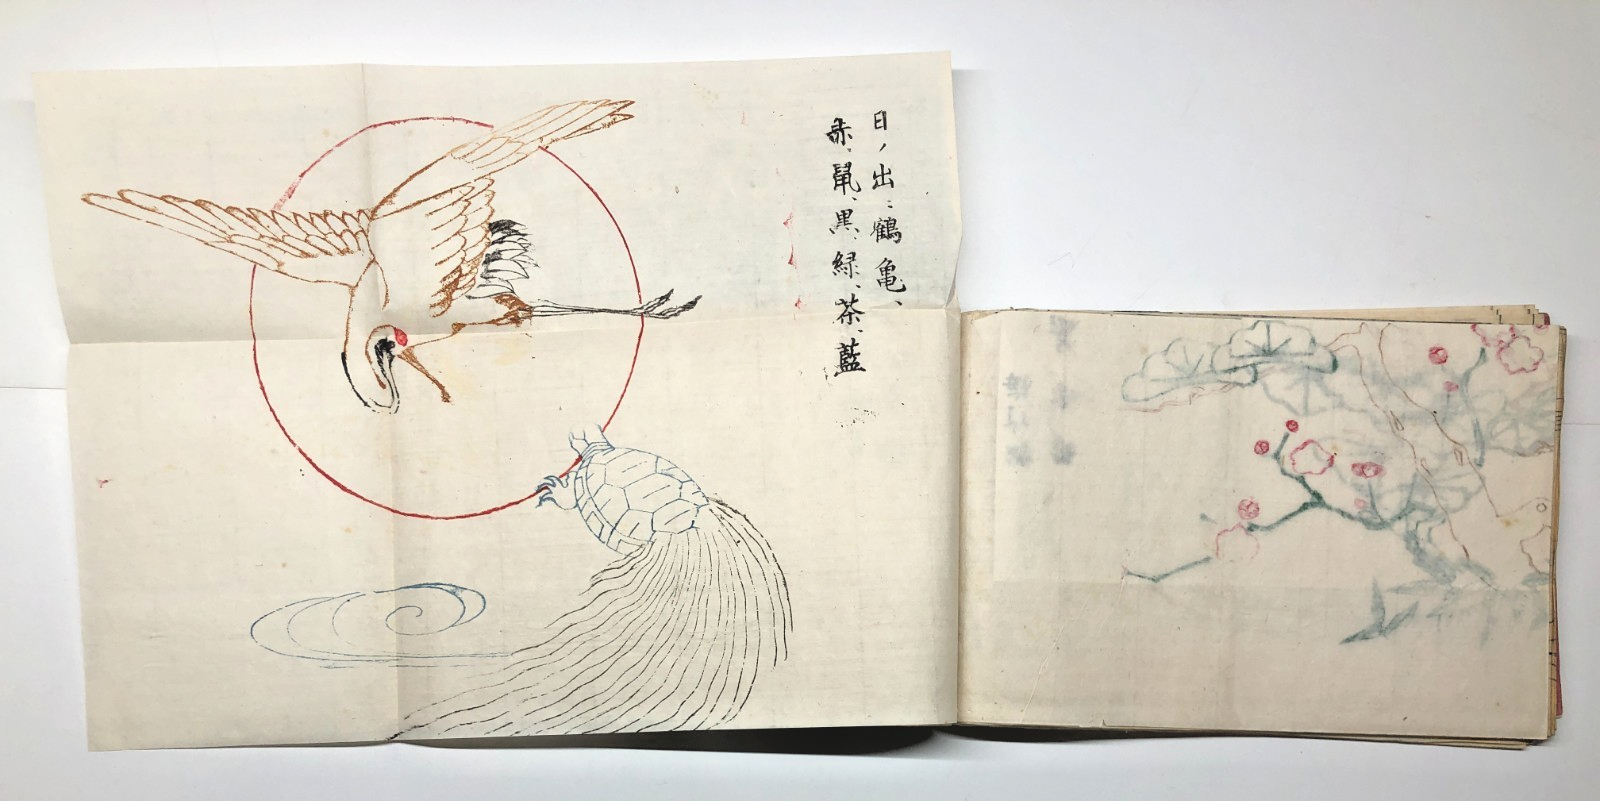 日ノ出ニ鶴亀、
赤、鼠、黒、緑、茶、藍